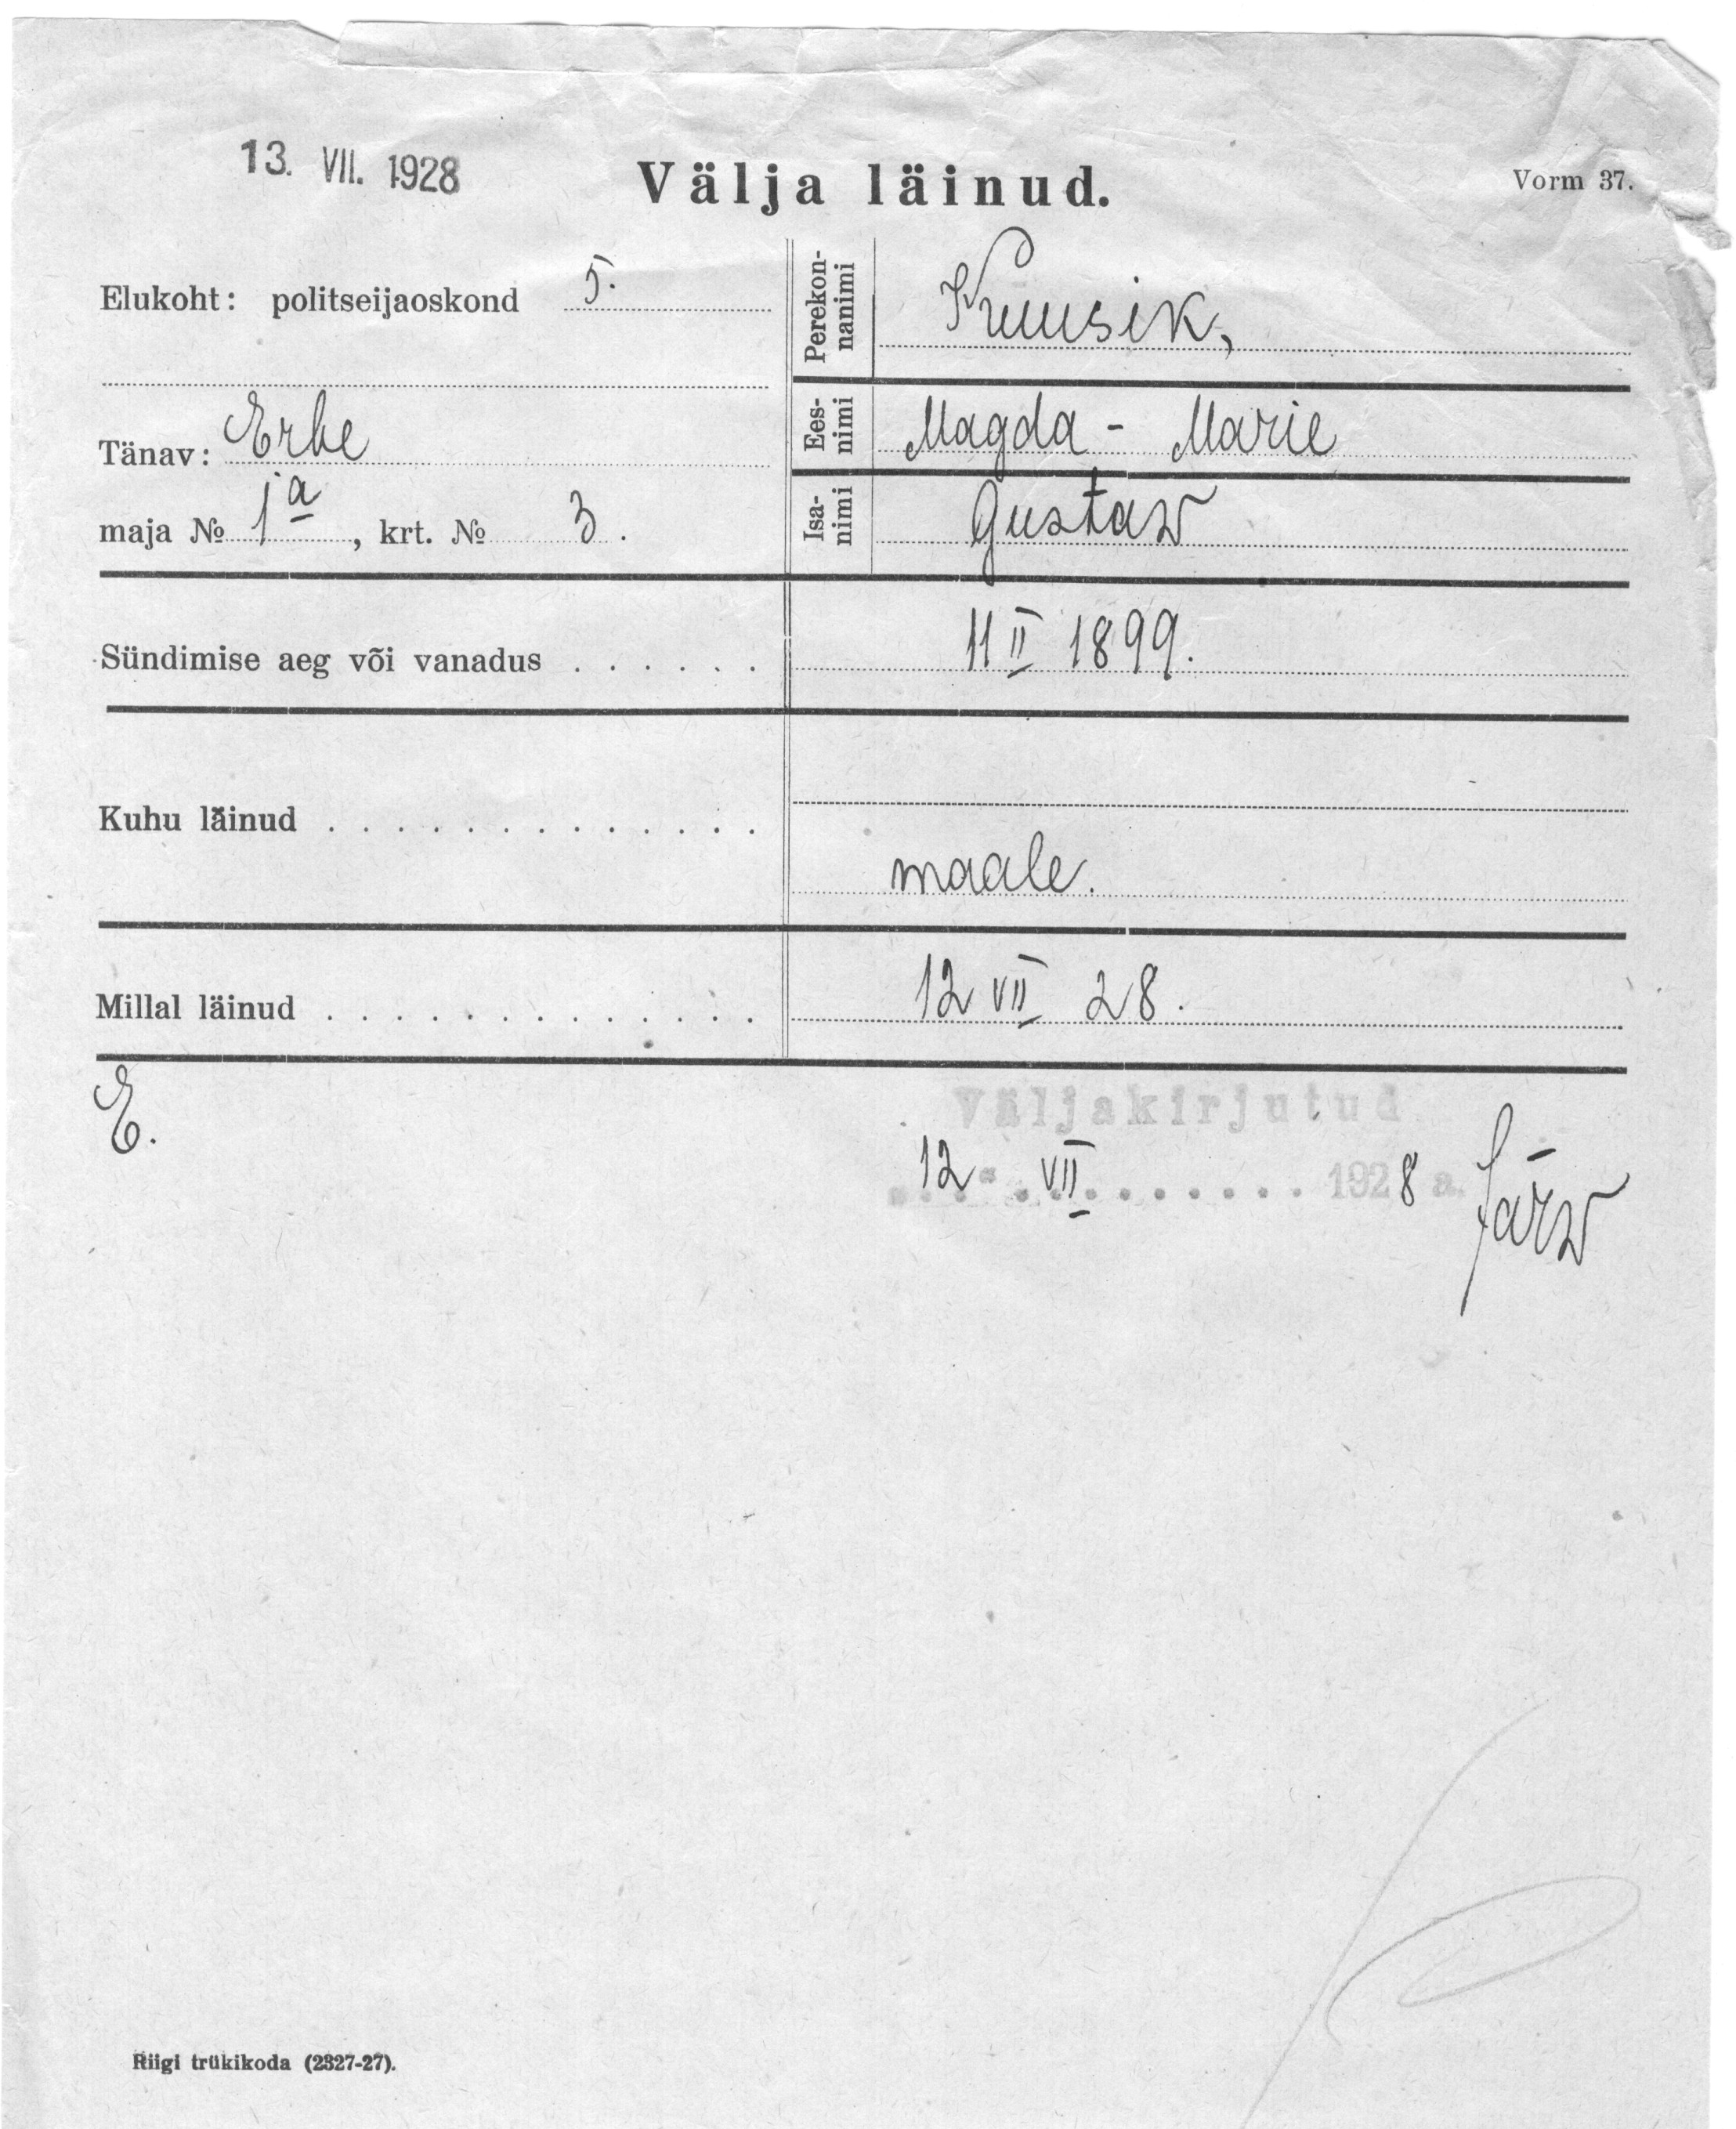 13. VII. 1928
Välja läinud.
Vorm 37.
Elukoht: politseijaoskond 5.
Perekon-
nanimi
Kuusik,
Tänav: Erbe
Ees-
nimi
Magda - Marie
maja № 1a, krt. № 3.
Isa-
nimi
Gustav
Sündimise aeg või vanadus . . . . . .
11 II 1899.
Kuhu läinud . . . . . . . . . . . . . .
maale.
Millal läinud . . . . . . . . . . . . . .
12 VII 28.
E.
Väljakirjutud
12 VII 1928 a.
Järv
Riigi trükikoda (2327-27).